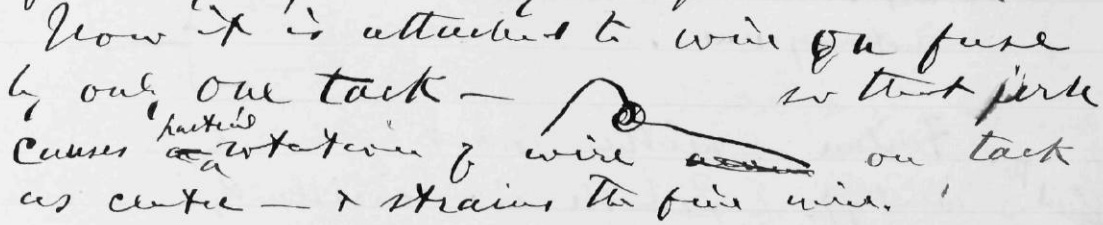 Now it is attached to wire on fuse
by only one tack — so that jerk
causes a partial rotation of wire on tack
as centre — & strains the fine wire.